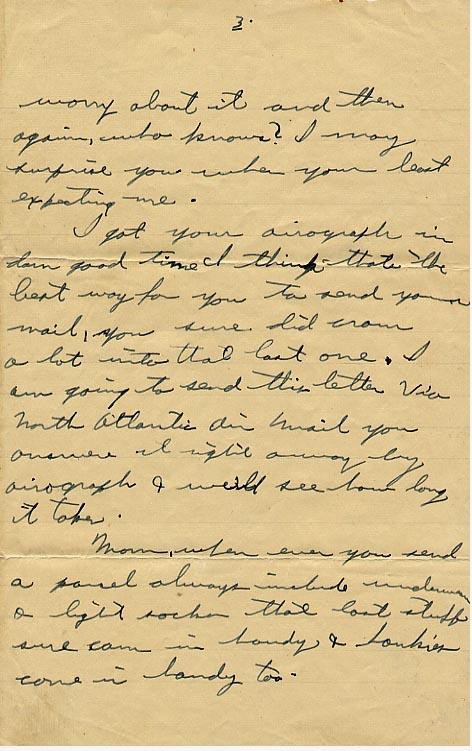 3.
worry about it and then
again, who knows? I may
surprise you when your least
expecting me.
I got your airograph in
darn good time I think thats the
best way for you to send your
mail, you sure did cram
a lot into that last one. I
am going to send this letter Via
North Atlantic Air Mail you
answere it right away by
airograph & we'll see how long
it takes.
Mom, when ever you send
a parcel always include underwear
& light socks that last stuff
sure cam in handy & hankies
come in handy too.